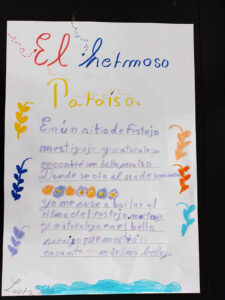 El hermoso
Paraíso
En un sitio de festejo
mestizaje y naturaleza
encontré un bello paraíso
Donde se oía el eco de
Yo me puse a bailar al
ritmo del festejo, mestizaje
y naturaleza en el bello
paraíso que mostró su
encanto y máxima belleza